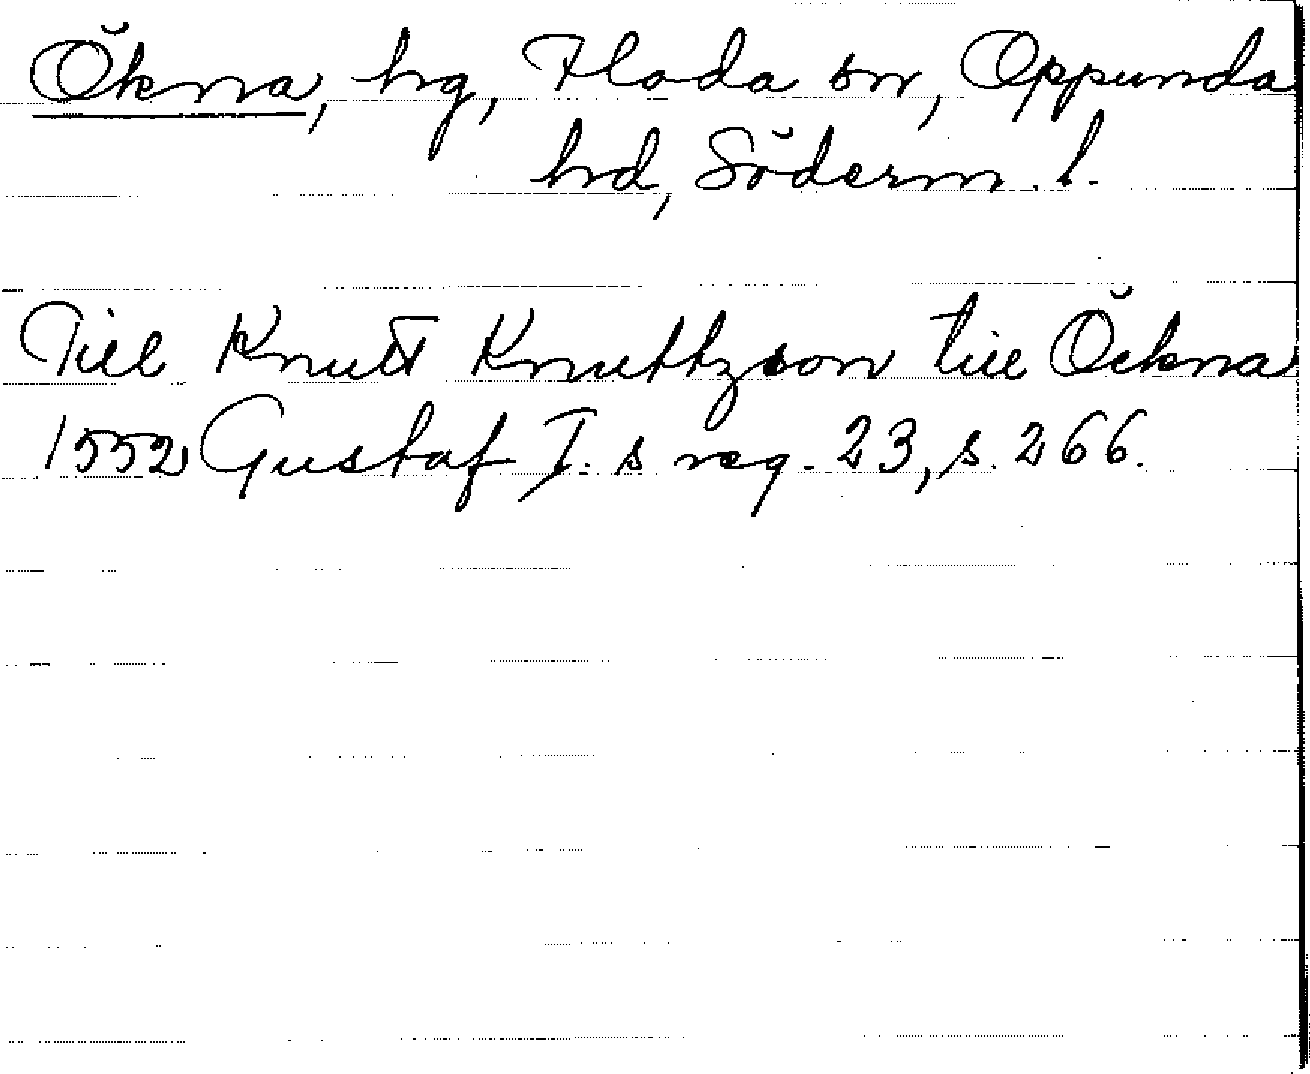 Ökna, hg, Floda sn, Oppunda
hrd, Söderm. l.
Till Knutt Knuttzson till Öckna
1552 Gustaf I. s reg. 23, s. 266.